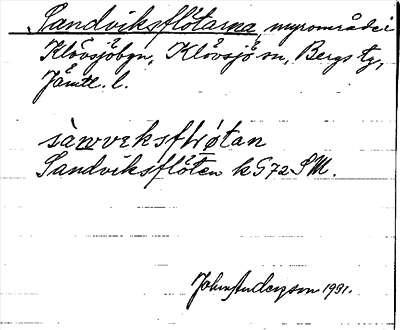 Sandviksflötarna, myrområde i
Klövsjöbyn, Klövsjö sn, Bergs tg,
Jämtl. l.
sànvveksftrøtan
Sandviksflöten k G72 SM.
John Anderzon 1931.